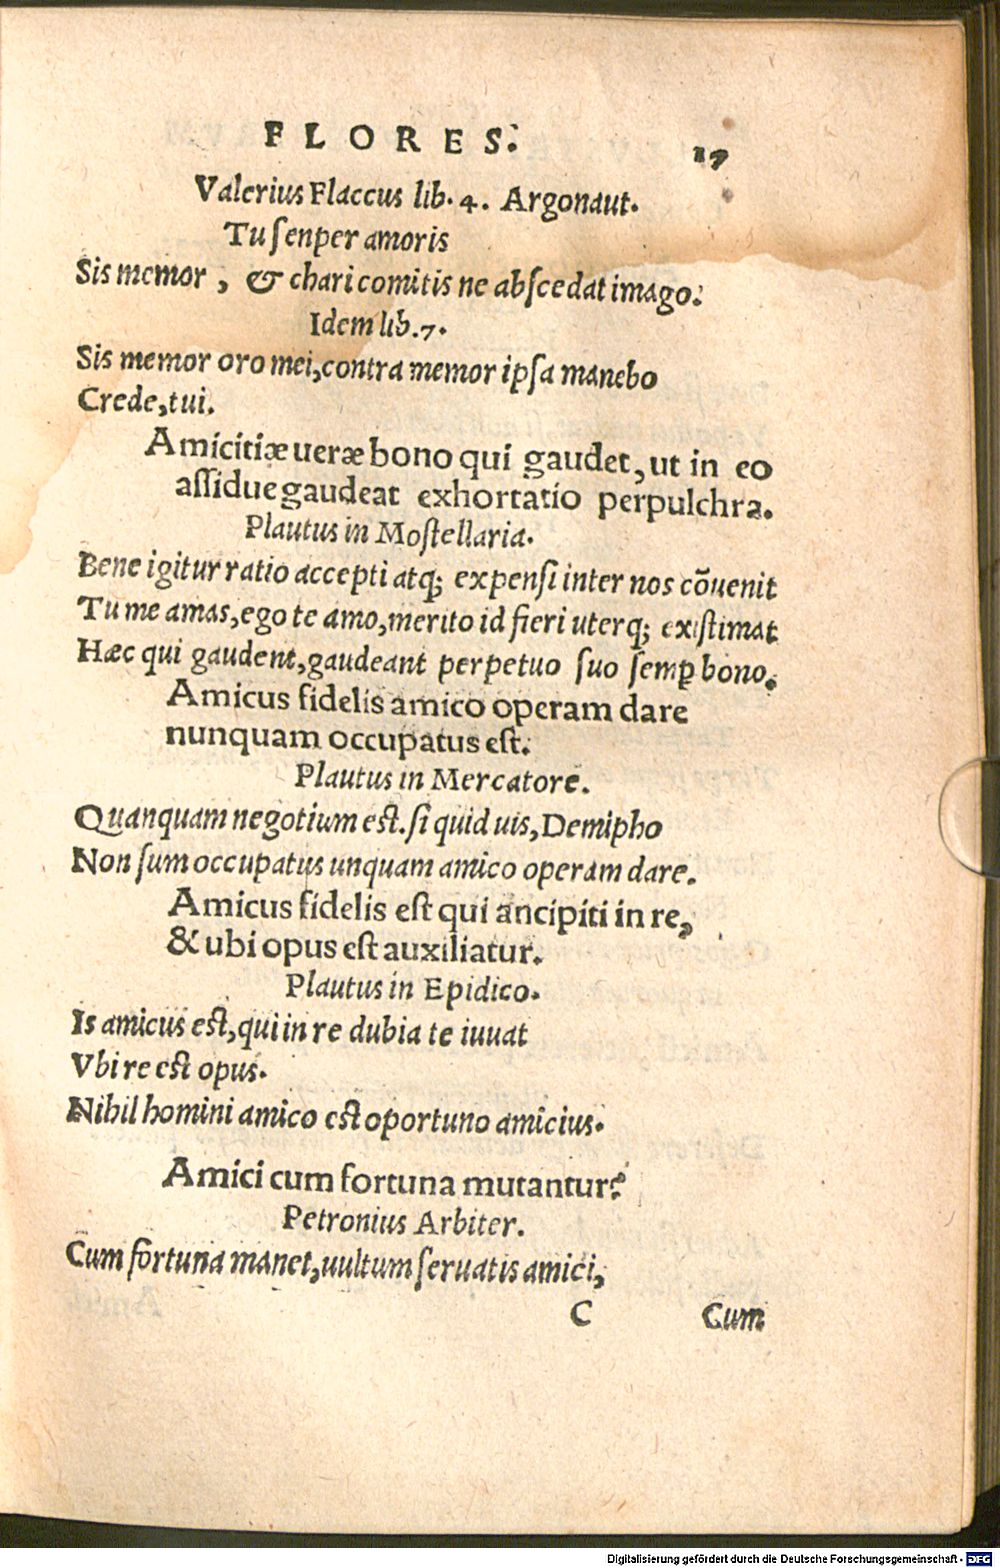 FLORES. 17
Valerius Flaccus lib. 4. Argonaut.
Tu senper amoris
Sis memor, & chari comitis ne abscedat imago.
Idem lib.7.
Sis memor oro mei,contra memor ipsa manebo
Crede,tui.
Amicitiæ ueræ bono qui gaudet,ut in eo
assidue gaudeat exhortatio perpulchra.
Plautus in Mostellaria.
Bene igitur ratio accepti atq; expensi inter nos cōuenit
Tu me amas,ego te amo,merito id fieri uterq; existimat
Hæc qui gaudent,gaudeant perpetuo suo semꝑ bono.
Amicus fidelis amico operam dare
nunquam occupatus est.
Plautus in Mercatore.
Quanquam negotium est. si quid uis,Demipho
Non sum occupatus unquam amico operam dare.
Amicus fidelis est qui ancipiti in re,
& ubi opus est auxiliatur.
Plautus in Epidico.
Is amicus est,qui in re dubia te iuuat
Vbi re est opus.
Nihil homini amico est oportuno amicius.
Amici cum fortuna mutantur.
Petronius Arbiter.
Cum fortuna manet,uultum seruatis amici,
C Cum
Digitalisierung gefördert durch die Deutsche Forschungsgemeinschaft - DFG